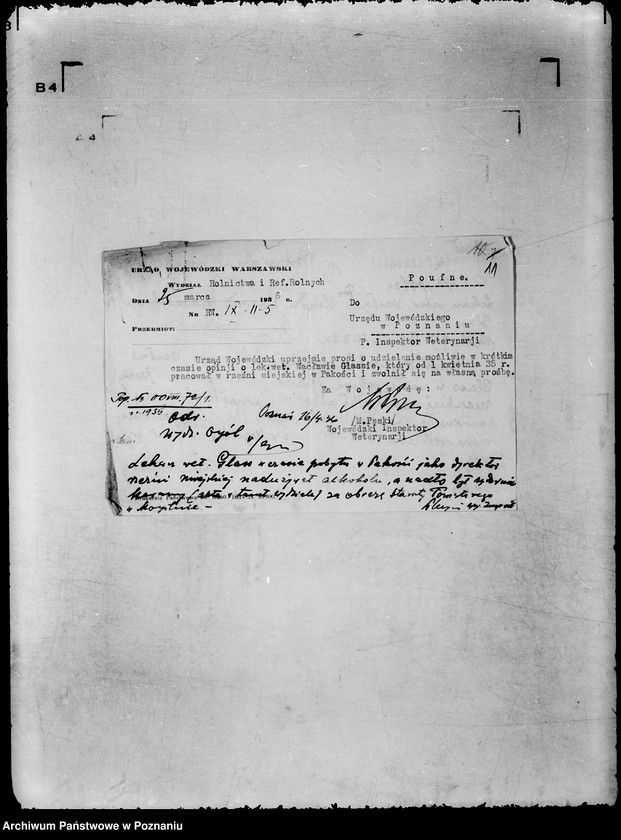 B4
10
11
URZĄD WOJEWÓDZKI WARSZAWSKI
WYDZIAŁ Rolnictwa i Ref.Rolnych
DNIA 25 marca 1936 R.
No RW. IX-11-5
PRZEDMIOT:
Poufne.
Do
Urzędu Wojewódzkiego
w Poznaniu
P. Inspektor Weterynarji
Urząd Wojewódzki uprzejmie prosi o udzielenie możliwie w krótkim
czasie opinji o lek.wet. Wacławie Glassie, który od 1 kwietnia 35 r.
pracował w rzeźni miejskiej w Pakości i zwolnił się na własną prośbę.
Za Wojewodę:
/M.Pęski/
Wojewódzki Inspektor
Weterynarji
Poznań 16/4.36
Odr.
Lekarz wet. Glass w czasie pobytu w Pakości jako dyrektor
rzeźni miejskiej nadużywał alkoholu, a nadto był
za obrazę Starosty Powiatowego
w Mogilnie -
Archiwum Państwowe w Poznaniu